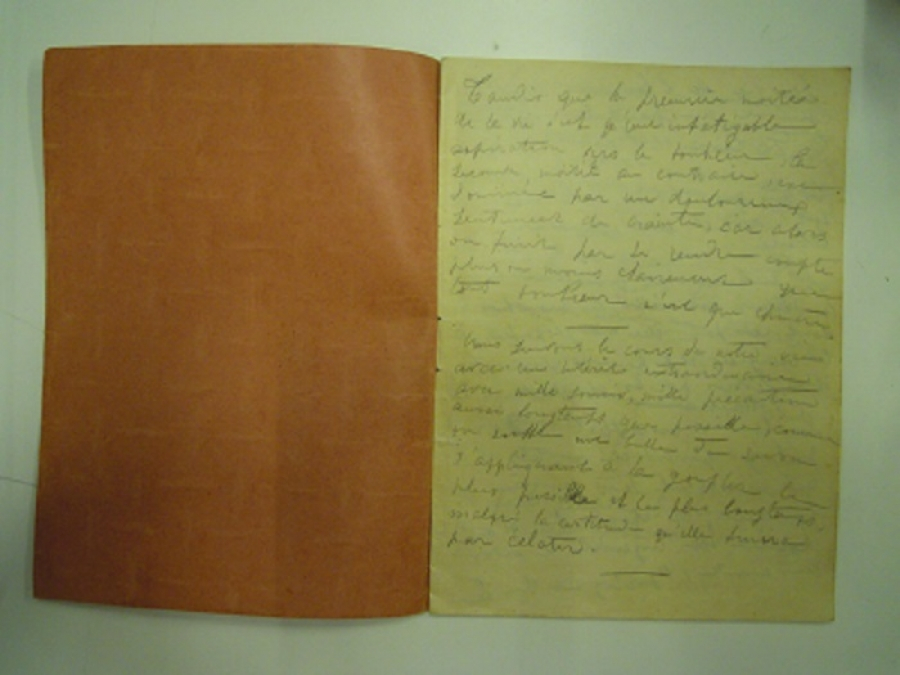 Tandis que la première moitié
de la vie n'est qu'une infatigable
aspiration vers le bonheur, la
seconde moitié au contraire est
dominée par un douloureux
sentiment de crainte, car alors
on finit par se rendre compte
plus ou moins clairement que
tout bonheur n'est que chimère
Nous suivons le cours de notre vie
avec un intérêt extraordinaire
avec mille soucis, mille précautions
aussi longtemps que possible, comme
on souffle une bulle de savon
s'appliquant à la gonfler le
plus possible et le plus longtemps,
malgré la certitude qu'elle finira
par éclater.